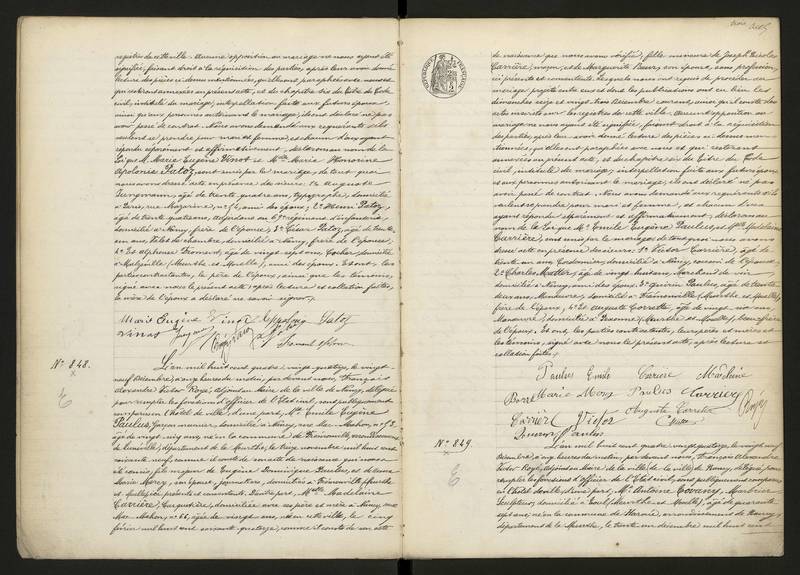 registres de cette ville. Aucune opposition au mariage ne nous ayant été
signifiée, faisant droit à la réquisition des parties, après leur avoir donné
lecture des pièces ci-dessus mentionnées,
qui resteront annexées au présent acte, et du chapitre six du titre du Code
civil, intitulé du mariage, interpellation faite aux futurs époux
ainsi qu'aux personnes autorisant le mariage, ils ont déclaré ne pas
avoir passé de contrat. Nous avons demandé aux requérants s'ils
veulent se prendre pour mari et femme, et chacun d'eux ayant
répondu séparément et affirmativement, déclarons au nom de la
Loi que M. Marie Eugène Vinot et Melle Marie Honorine
Apolonie Patoz, sont unis par le mariage, de tout quoi
nous avons dressé acte en présence de MM. 1° Auguste
âgé de trente quatre ans, typographe, domicilié
à Paris, rue Mazarine, ami des époux; 2° Henri Patoz,
âgé de trente quatre ans, adjudant au régiment d'infanterie,
domicilié à Nancy, frère de l'épouse, 3° César Patoz, âgé de trente
un ans, valet de chambre, domicilié à Nancy, frère de l'épouse,
4° et Alphonse Fromont, âgé de vingt sept ans, cocher, domicilié
à (Meurthe et Moselle), ami des époux. Et ont, les
parties contractantes, le père de l'époux, ainsi que les témoins,
signé avec nous le présent acte, après lecture et collation faites,
la mère de l'époux a déclaré ne savoir signer.
Marie Eugène Vinot Patoz
Vinot
N° 848.
L'an mil huit cent quatre vingt quatorze, le vingt
neuf Décembre, à onze heures du matin, par devant nous, François
Alexandre Victor Royé, Adjoint au Maire de la ville de Nancy, délégué
pour remplir les fonctions d'officier de l'état civil, sont publiquement
comparus en l'hôtel de ville, d'une part, Mr. Emile Eugène
Paulus, garçon marinier, domicilié à Nancy, rue Mac-Mahon,
âgé de vingt cinq ans, né en la commune de arrondissement
de Lunéville, département de la Meurthe, le treize novembre mil huit cent
soixante neuf, comme il conste de son acte de naissance
fils majeur de Eugène Dominique Paulus, et de Anne
Marie Marcy, son épouse, journaliers, domiciliés à (Meurthe
et Moselle), ici présents et consentants. D'autre part, Melle Madelaine
Carrière, domiciliée avec ses père et mère à Nancy, rue
Mac-Mahon, n° 66, âgée de vingt ans, née en cette ville, le cinq
février mil huit cent soixante quatorze, comme il conste de son acte
RÉPUBLIQUE FRANÇAISE
de naissance que nous avons vérifié, fille mineure de Joseph Nicolas
Carrière, maçon, et de Marguerite Bour, son épouse, sans profession,
ici présents et consentants. Lesquels nous ont requis de procéder au
mariage projeté entre eux et dont les publications ont eu lieu les
dimanches seize et vingt trois Décembre courant, ainsi qu'il conste des
actes inscrits sur les registres de cette ville. Aucune opposition au
mariage ne nous ayant été signifiée, faisant droit à la réquisition
des parties, après leur avoir donné lecture des pièces ci-dessus men-
tionnées, qu'elles ont paraphées avec nous et qui resteront
annexées au présent acte, et du chapitre six du titre du Code
civil, intitulé du mariage, interpellation faite aux futurs époux
et aux personnes autorisant le mariage, ils ont déclaré ne pas
avoir passé de contrat. Nous avons demandé aux requérants s'ils
veulent se prendre pour mari et femme, et chacun d'eux
ayant répondu séparément et affirmativement, déclarons au
nom de la Loi que Mr Emile Eugène Paulus, et Melle Madelaine
Carrière, sont unis par le mariage, de tout quoi nous avons
dressé acte en présence de MM. 1° Victor Carrière, âgé de
trente un ans, Cordonnier, domicilié à Nancy, cousin de l'épouse,
2° Charles Muller, âgé de vingt huit ans, Marchand de vin,
domicilié à Nancy, ami des époux, 3° Quirin Paulus, âgé de trente
deux ans, Manœuvre, domicilié à (Meurthe et Moselle),
frère de l'époux, 4° et Auguste Corrette, âgé de vingt neuf ans,
Manœuvre, domicilié à (Meurthe et Moselle), beau frère
de l'époux. Et ont, les parties contractantes, leurs pères et mères et
les témoins, signé avec nous le présent acte, après lecture et
collation faites.
Paulus Emile Carière Madelaine
Bour Marie Marcy Paulus Carrier
Carrière Victor Auguste Corrette Royé
Quirin Paulus
N° 849.
L'an mil huit cent quatre vingt quatorze, le vingt neuf
Décembre, à onze heures du matin, par devant nous, François Alexandre
Victor Royé, Adjoint au Maire de la ville de Nancy, délégué pour
remplir les fonctions d'officier de l'état civil, sont publiquement comparus
en l'hôtel de ville, d'une part, Mr. Antoine Marbrier
Sculpteur, domicilié à Toul (Meurthe et Moselle), âgé de quarante
sept ans, né en la commune de arrondissement de Nancy,
département de la Meurthe, le trente un décembre mil huit cent